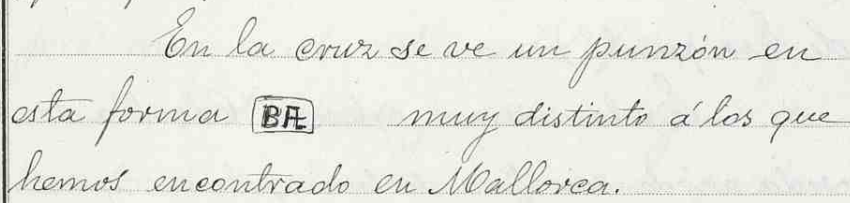 En la cruz se ve un punzón en
esta forma BA muy distinto á los que
hemos encontrado en Mallorca.